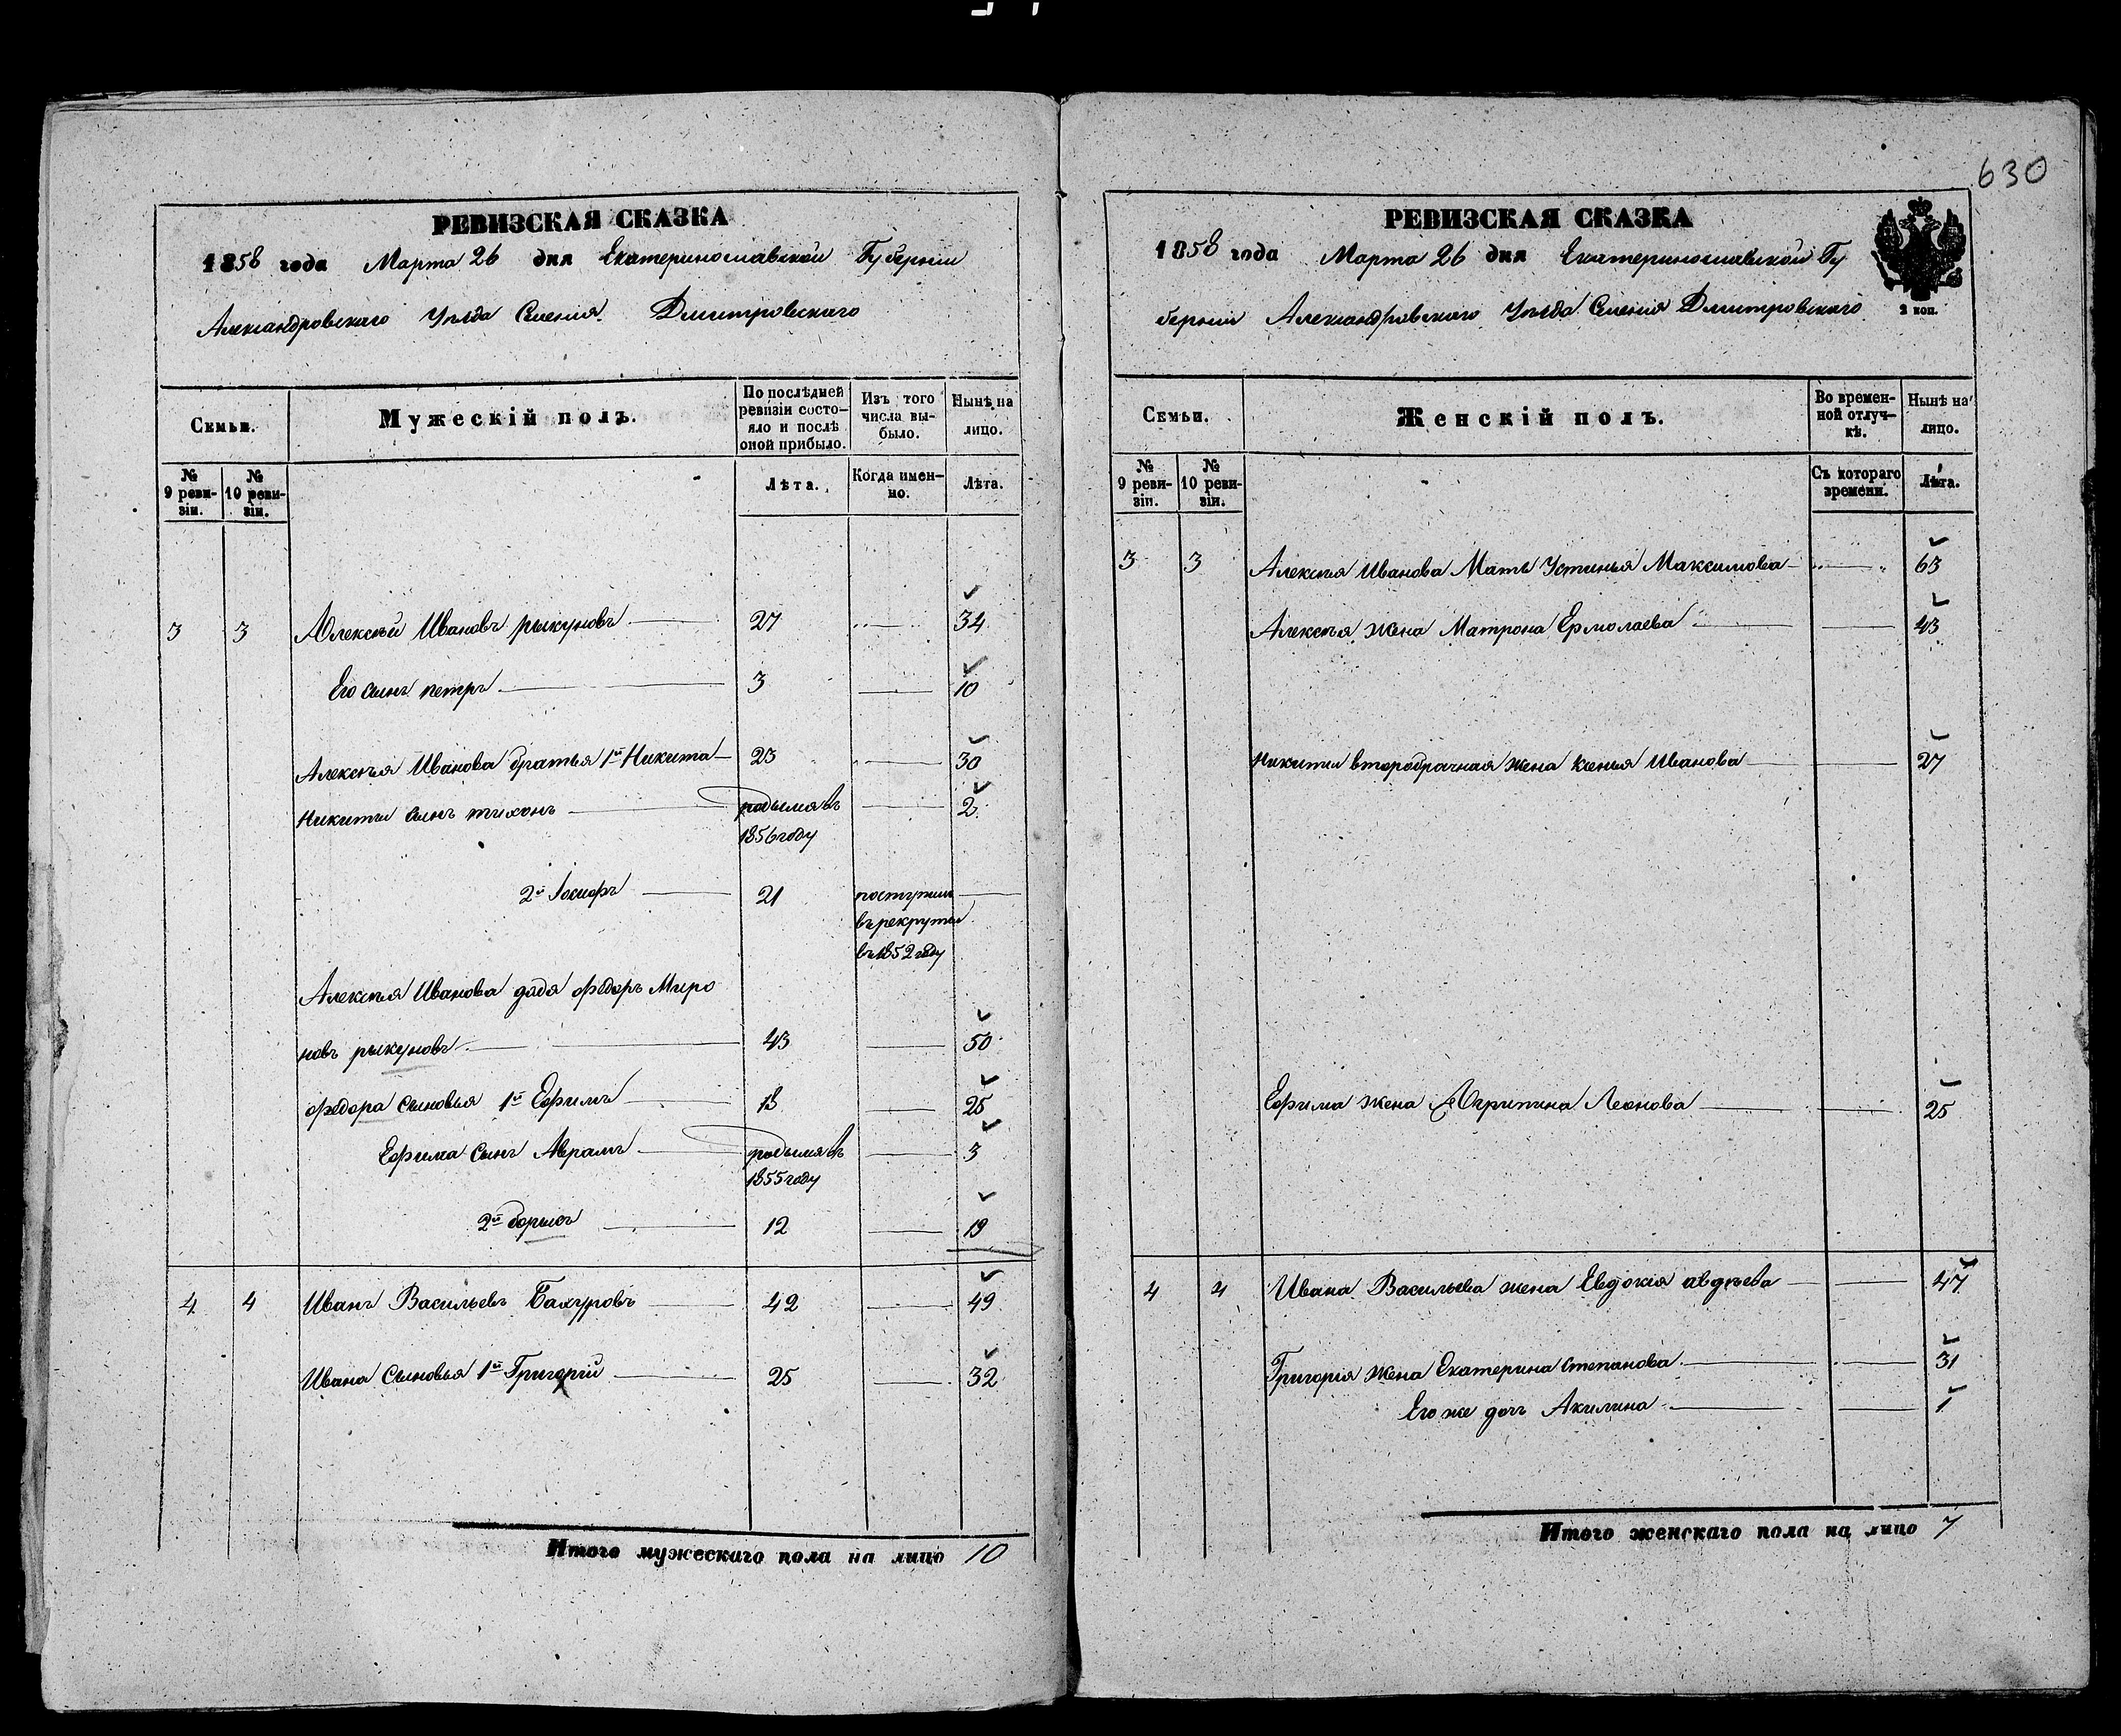 630
РЕВИЗСКАЯ СКАЗКА
1858 года Марта 26 дня Екатеринославской Губернии
Александровскаго Уѣзда Селения Дмитровскаго
Семьи.
Мужескій полъ.
По послѣдней ревизіи состояло и послѣ оной прибыло.
Изъ того числа выбыло.
Нынѣ на лицо.
№ 9 ревизіи.
№ 10 ревизіи.
Лѣта.
Когда именно.
Лѣта.
3 3 Алексѣй Ивановъ рыкуновъ 27 34
Его сынъ петръ 3 10
Алексѣя Иванова братья 1й Никита 23 30
Никиты сынъ тихонъ родылся въ 2
1856 году
2й Іосифъ 21 поступил
въ рекруты
въ 1852 году
Алексѣя Иванова дядя Федоръ Миро
новъ рыкуновъ 43 50
Федора сыновья 1й Ефимъ 18 25
Ефима сынъ Аврамъ родылся въ 3
1855 году
2й борысъ 12 19
4 4 Иванъ Васильевъ Бахуровъ 42 49
Ивана сыновья 1й Григорій 25 32
Итого мужескаго пола на лицо 10
РЕВИЗСКАЯ СКАЗКА
1858 года Марта 26 дня Екатеринославской Гу
бернии Александровскаго Уѣзда Селения Дмитровскаго
2 коп.
Семьи.
Женскій полъ.
Во временной отлучкѣ.
Нынѣ на лицо.
№ 9 ревизіи.
№ 10 ревизіи.
Съ котораго времени.
Лѣта.
3 3 Алексѣя Иванова Мать Устинья Максимова 63
Алексѣя жена Матрона Ермолаева 43
Никиты второбрачная жена ксенья Иванова 27
Ефима жена Агрипина Леонова 25
4 4 Ивана Васильева жена Евдокія авдѣева 47
Григорія жена Екатерина степанова 31
Его же дочь Акилина 1
Итого женскаго пола на лицо 7